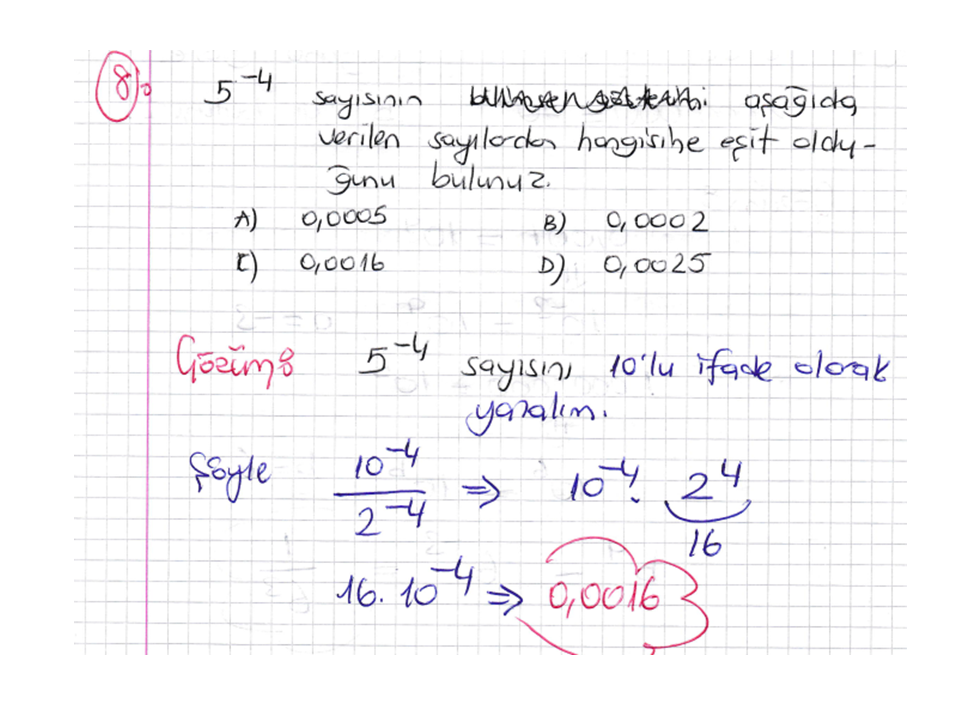 8)
5⁻⁴ sayısının aşağıda
verilen sayılardan hangisine eşit oldu-
ğunu bulunuz.
A) 0,0005 B) 0,0002
C) 0,0016 D) 0,0025
Çözüm: 5⁻⁴ sayısını 10'lu ifade olarak
yazalım.
Şöyle 10⁻⁴ / 2⁻⁴ ⇒ 10⁻⁴ . 2⁴
16
16. 10⁻⁴ ⇒ 0,0016